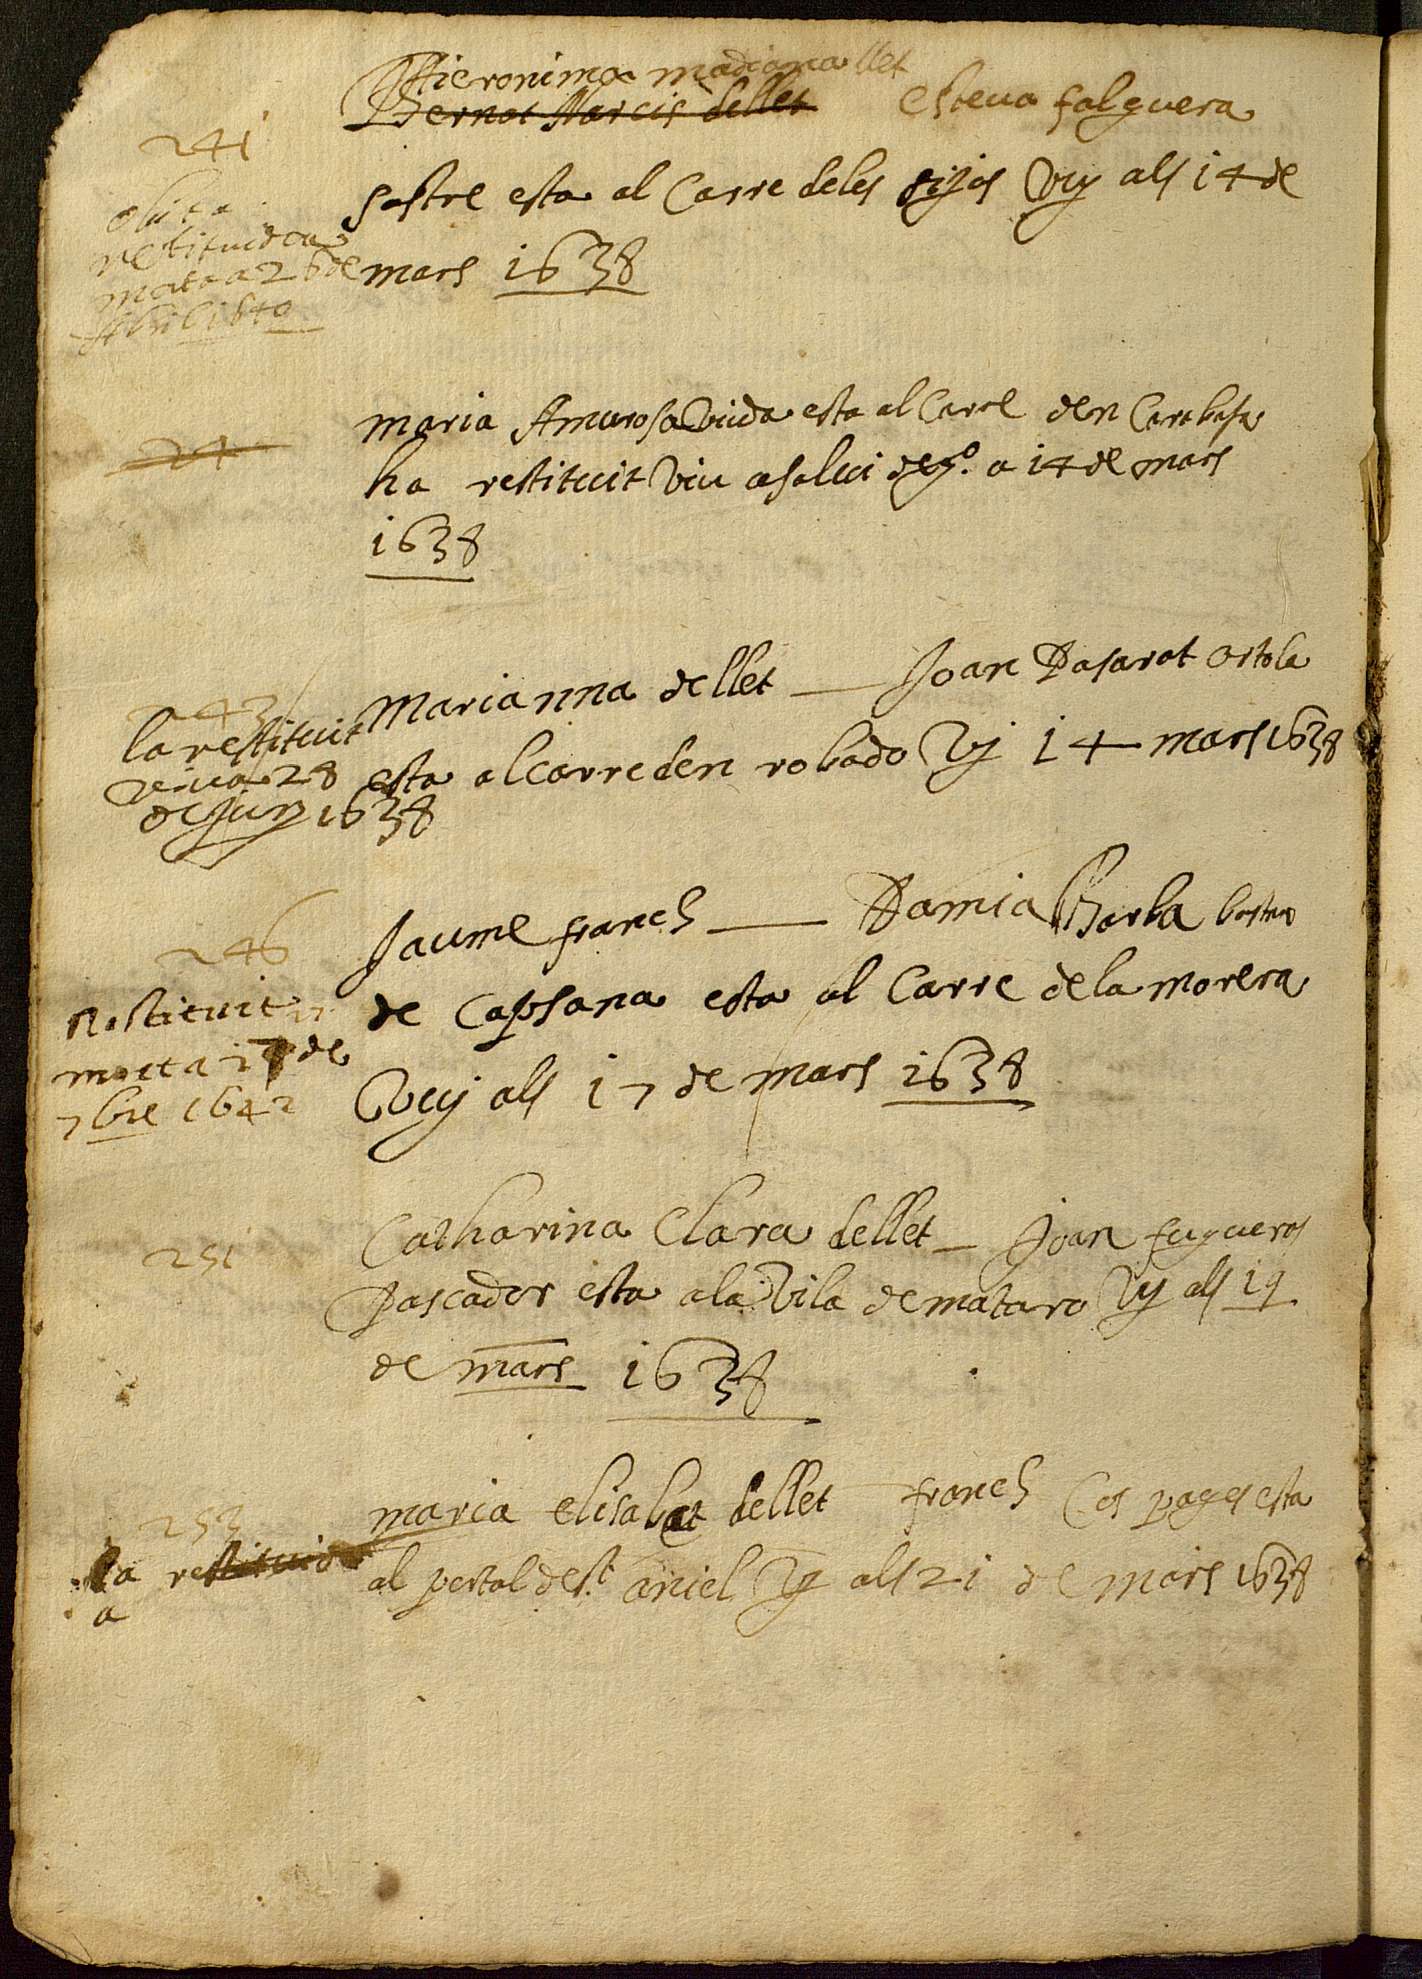 Hieronima madiona llet
Bernat Narcis dellet esteva falguera
241
sastre esta al Carre deles sijes Vuy als 14 de
mars 1638
obita
restituida
morta a 26 de
Abril
maria Amurosa Viuda esta al Carre den Carabasa
24
ha restituit Viu a Salvi a 14 de mars
1638
243
Marianna dellet — Joan Pasarat ortola
la restituit
viua 28
de Juny 1638
esta al carre den robado Vy 14 mars 1638
246
Jaume franch — Damia Barba
Restituit
morta 17 de
7bre 1642
de Capsana esta al Carre de la morera
Vuy als 17 de mars 1638
251
Catharina Clara dellet — Joan fugueros
Pascador esta ala Vila de mataro Vy als 19
de mars 1638
253
maria elisabet dellet franch Cos pages esta
la restituida
a
al portal de st aniel Vy als 21 de mars 1638